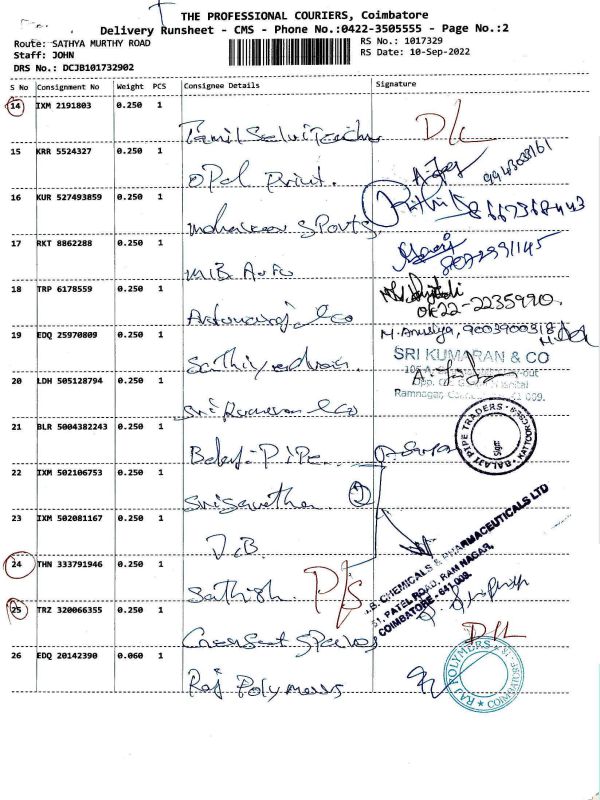 THE PROFESSIONAL COURIERS, Coimbatore
Delivery Runsheet - CMS - Phone No.:0422-3505555 - Page No.:2
Route: SATHYA MURTHY ROAD
RS No.: 1017329
Staff: JOHN
RS Date: 10-Sep-2022
DRS No.: DCJB101732902
S No Consignment No Weight PCS Consignee Details Signature
14 IXM 2191803 0.250 1
D/L
15 KRR 5524327 0.250 1
Opal Print.
16 KUR 527493859 0.250 1
Sports
17 RKT 8862288 0.250 1
8072991145
MIB Auto
18 TRP 6178559 0.250 1
0422-2235990
& co
19 EDQ 25970809 0.250 1
M. Anusiya, 9003900318
SRI KUMARAN & CO
20 LDH 505128794 0.250 1
Ramnagar,
Sri Kumaran & Co
21 BLR 5004382243 0.250 1
BALAJI PIPE TRADERS
Balaji Pipe
22 IXM 502106753 0.250 1
23 IXM 502081167 0.250 1
J.B.
J.B. CHEMICALS & PHARMACEUTICALS LTD
51, PATEL ROAD, RAM NAGAR,
COIMBATORE - 641 009.
24 THN 333791946 0.250 1
Sathish
25 TRZ 320066355 0.250 1
D/L
26 EDQ 20142390 0.060 1
Raj Polymers
RAJ POLYMERS
COIMBATORE